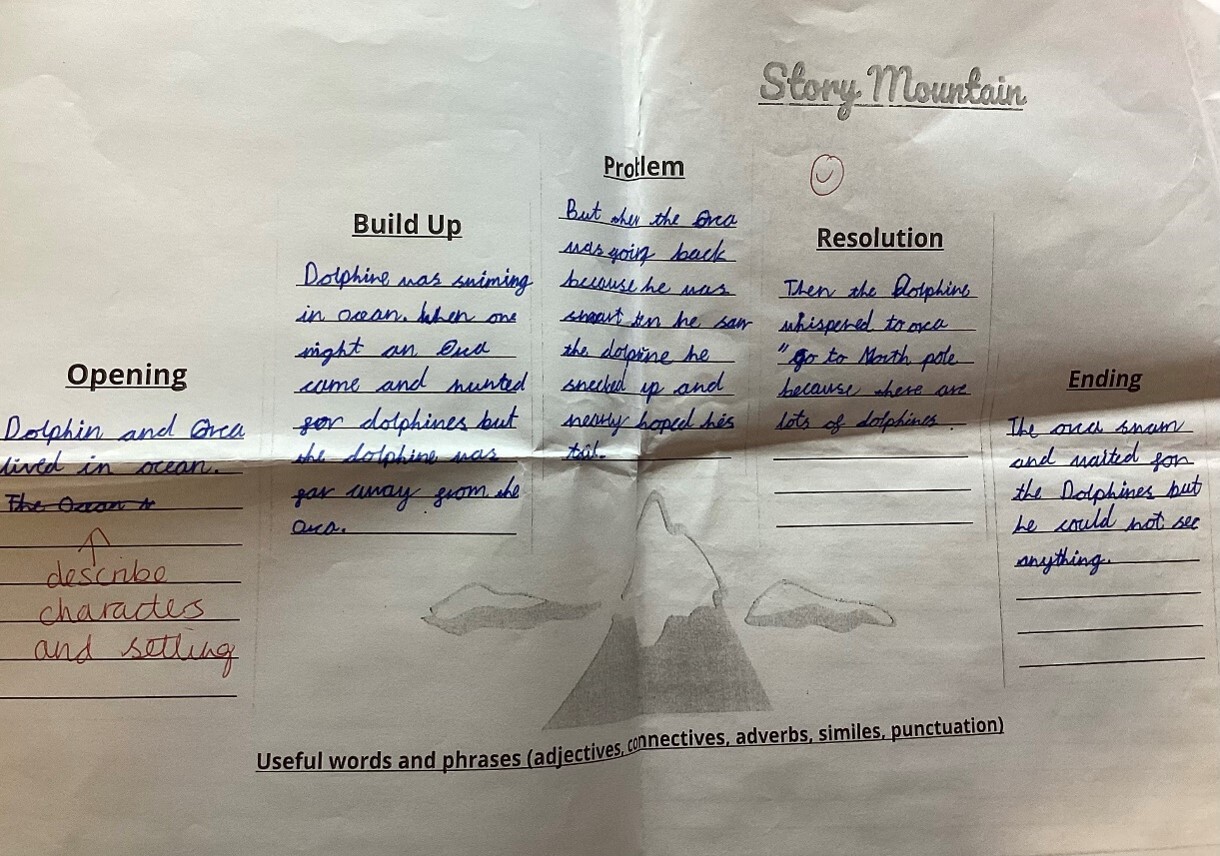 Story Mountain
Opening
Dolphin and Orca
lived in ocean.
The Ocean
describe
characters
and setting
Build Up
Dolphine was swiming
in ocean. When one
night an Orca
came and hunted
for dolphines but
the dolphine was
far away from the
Orca.
Problem
But when the Orca
was going back
because he was
smart he saw
the dolpine he
snecked up and
nearly hoped his
tail.
Resolution
Then the Dolphine
whispered to orca
"go to North pole
because there are
lots of dolphines.
Ending
The orca swam
and waited for
the Dolphines but
he could not see
anything.
Useful words and phrases (adjectives, connectives, adverbs, similes, punctuation)